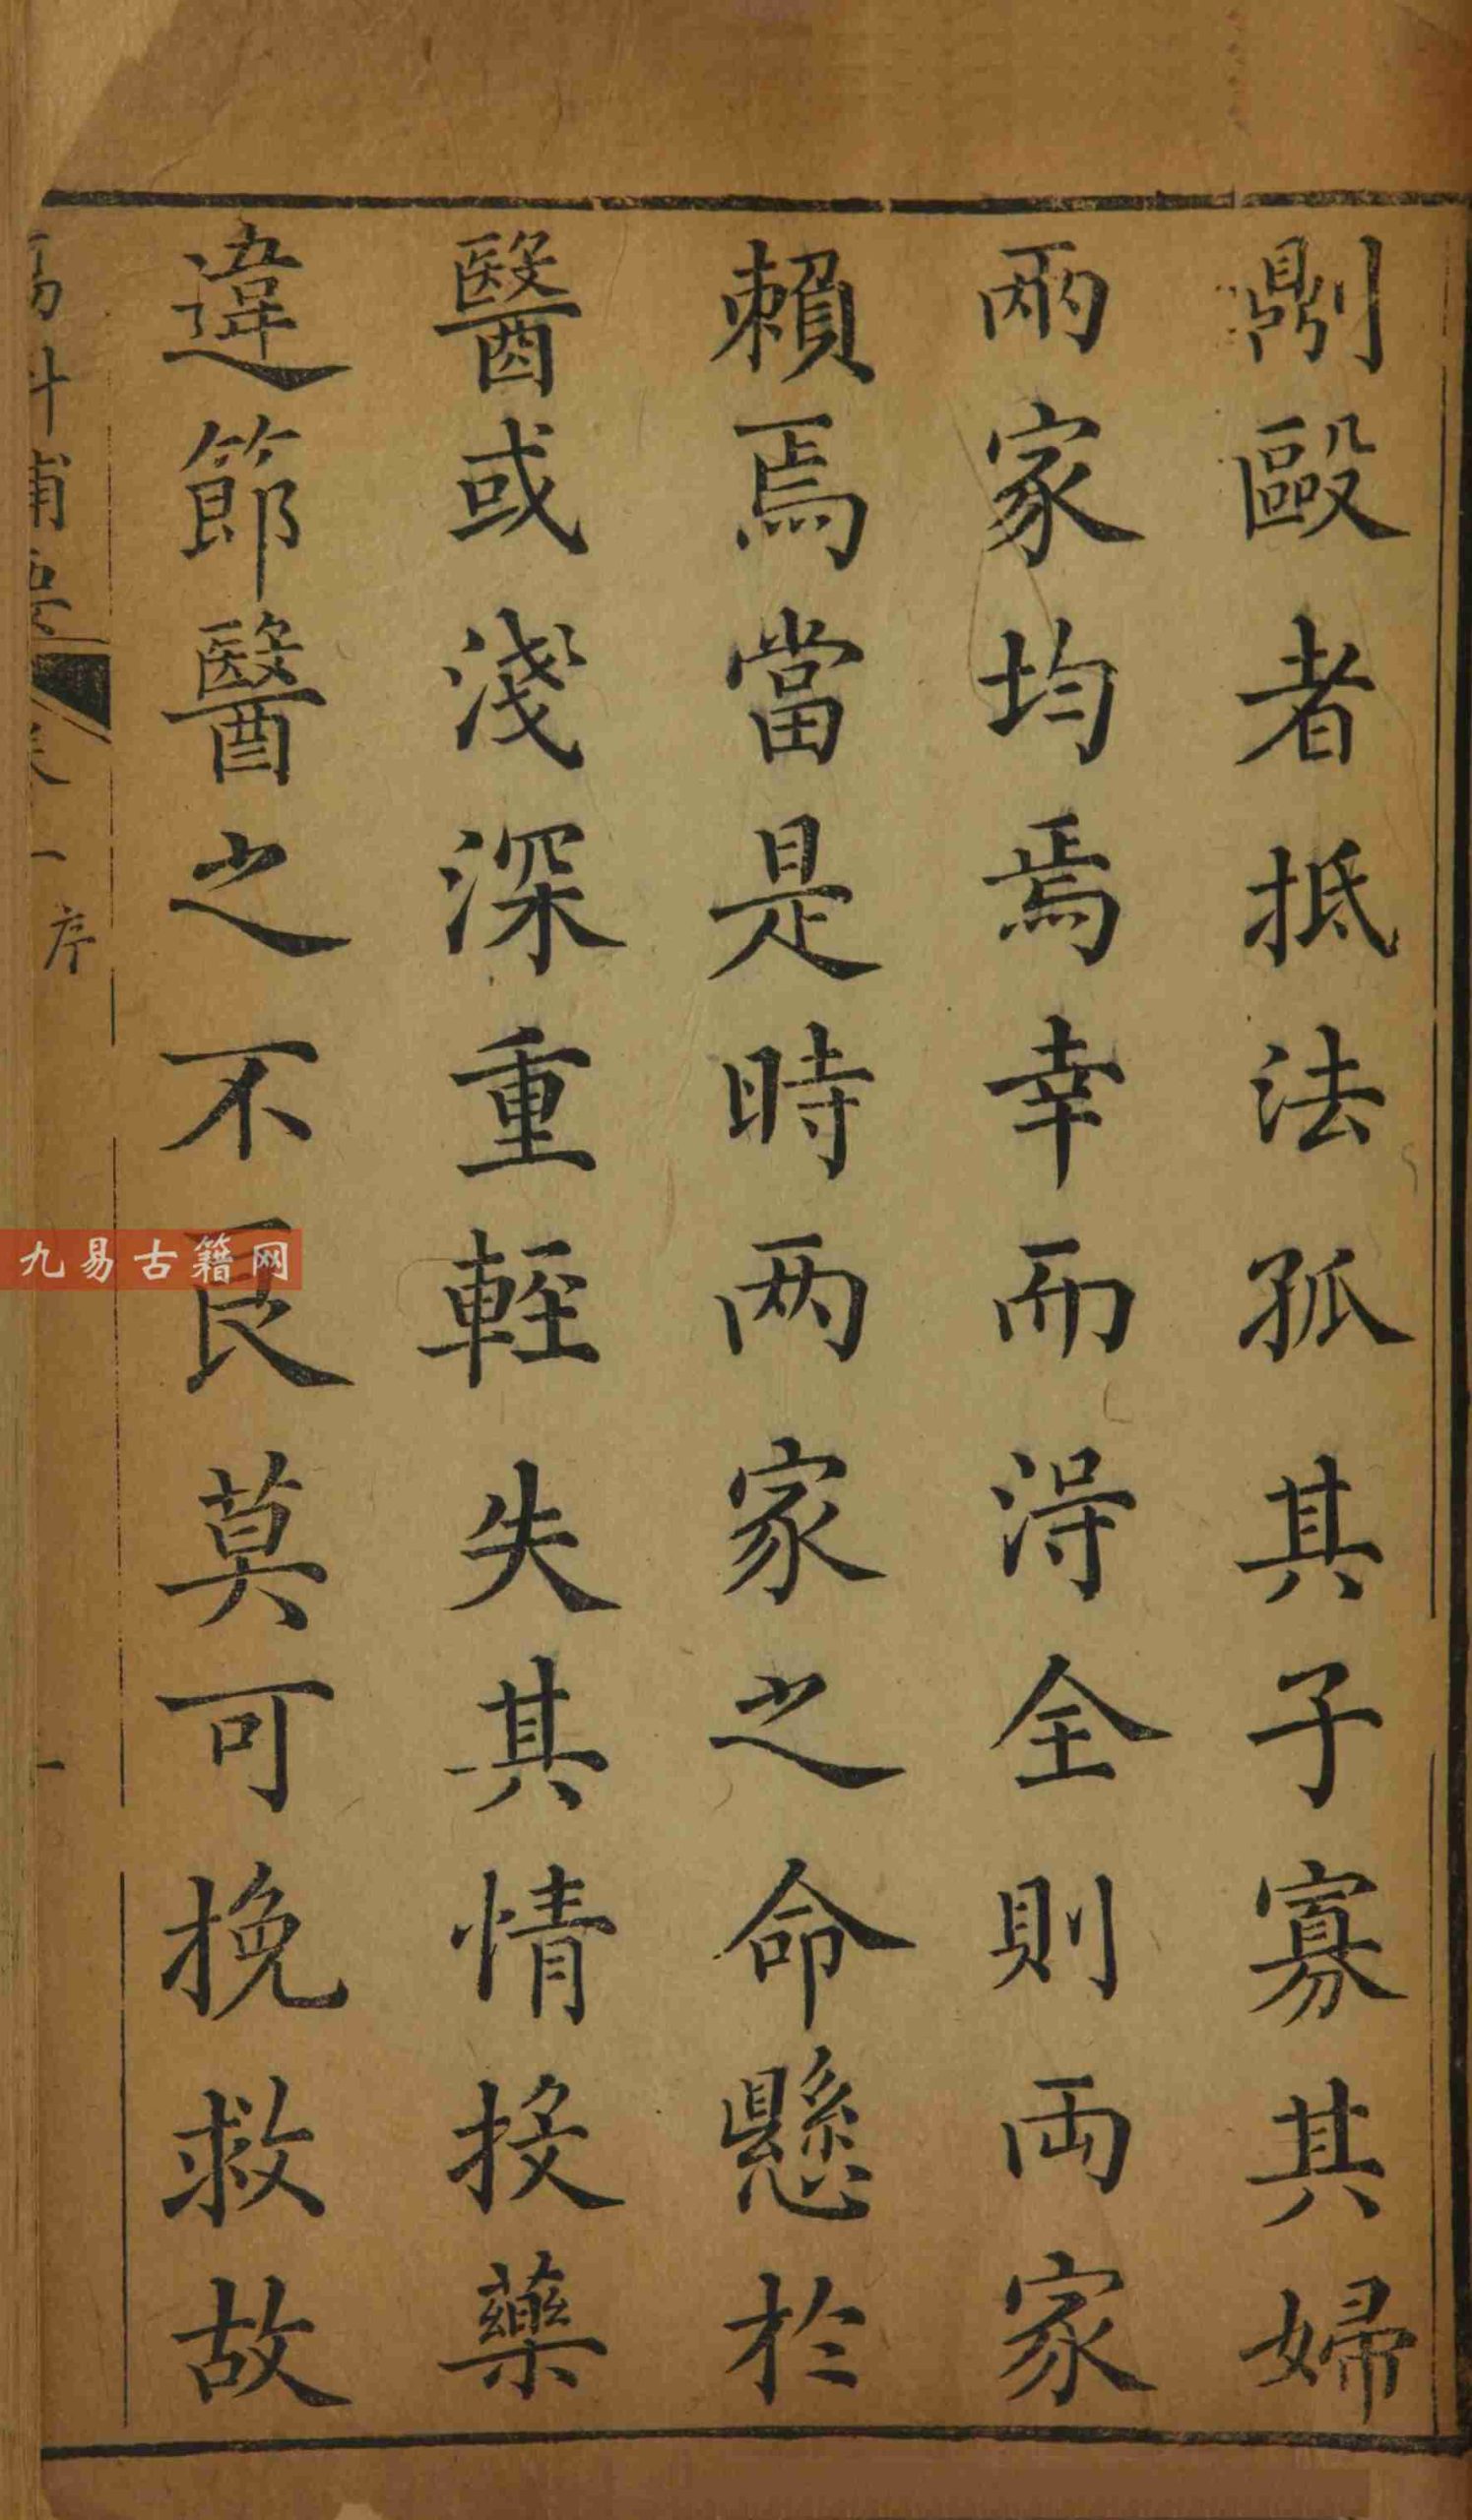 剮毆者抵法孤其子寡其婦
兩家均焉幸而淂全則両家
賴焉當是時两家之命懸於
醫或淺深重輕失其情投藥
違節醫之不良莫可挽救故
傷科補要 卷一 序 一
九易古籍网